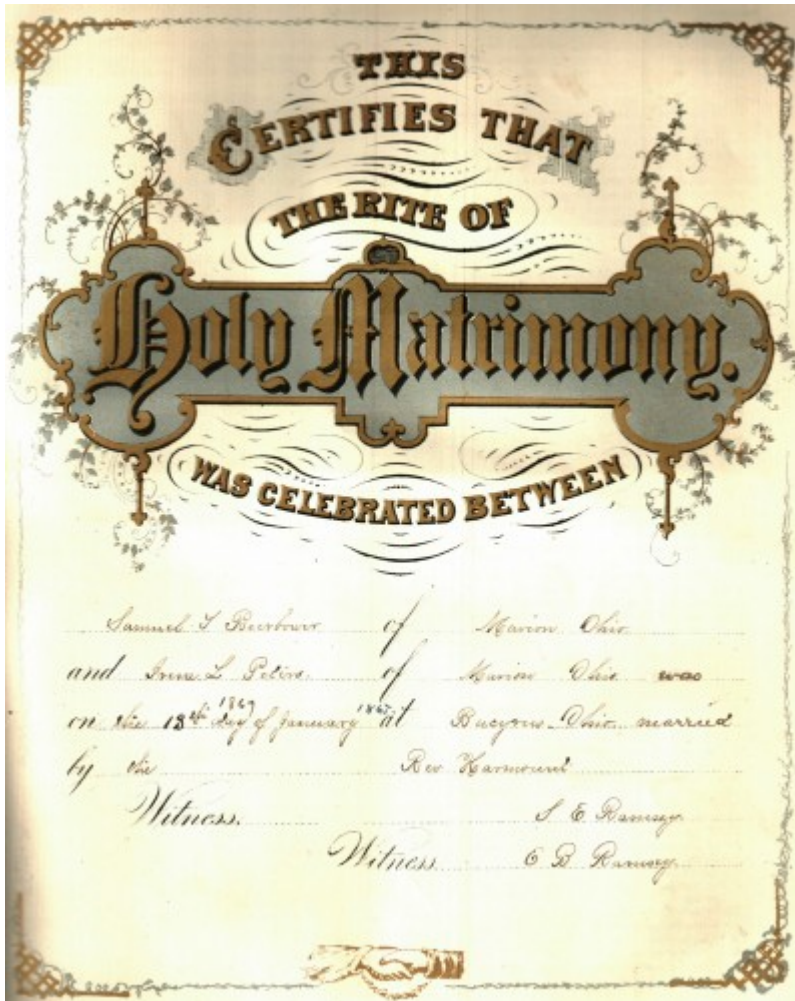 THIS
CERTIFIES THAT
THE RITE OF
Holy Matrimony.
WAS CELEBRATED BETWEEN
Samuel of Marion Ohio
and Irene L Peters of Marion Ohio was
on the 18th day of January at Bucyrus Ohio married
by the Rev
Witness. S E Ramsey
Witness E B Ramsey